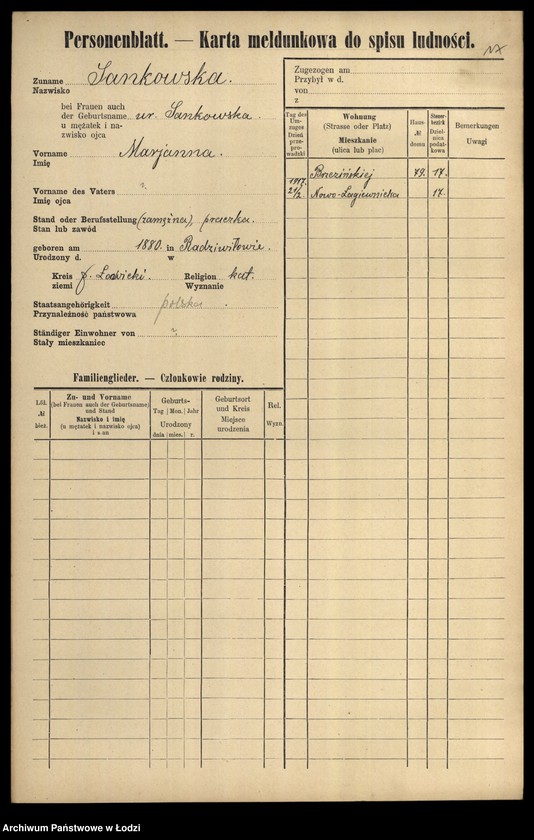 Personenblatt. — Karta meldunkowa do spisu ludności.
Zuname Jankowska.
Nazwisko
bei Frauen auch
der Geburtsname ur. Jankowska.
u mężatek i na-
zwisko ojca
Vorname Marjanna.
Imię
Vorname des Vaters ?
Imię ojca
Stand oder Berufsstellung (zamężna), praczka.
Stan lub zawód
geboren am 1880. in Radziwiłowie.
Urodzony d. w
Kreis p. Łowicki. Religion kat.
ziemi Wyznanie
Staatsangehörigkeit polska.
Przynależność państwowa
Ständiger Einwohner von ?
Stały mieszkaniec
Familienglieder. — Członkowie rodziny.
Lfd. № bież.
Zu- und Vorname
(bei Frauen auch der Geburtsname)
und Stand
Nazwisko i imię
(u mężatek i nazwisko ojca)
i stan
Geburts-
Tag Mon. Jahr
Urodzony
dnia mies. r.
Geburtsort
und Kreis
Miejsce
urodzenia
Rel.
Wyzn.
Zugezogen am
Przybył w d.
von
z
Tag des Um-zuges
Dzień prze-prowadzki
Wohnung
(Strasse oder Platz)
Mieszkanie
(ulica lub plac)
Haus
№
domu
Steuer-bezirk
Dziel-nica podat-kowa
Bemerkungen
Uwagi
Brzezińskiej 79. 17.
1917.
21/2 Nowo-Łagiewnicka 17.
Archiwum Państwowe w Łodzi